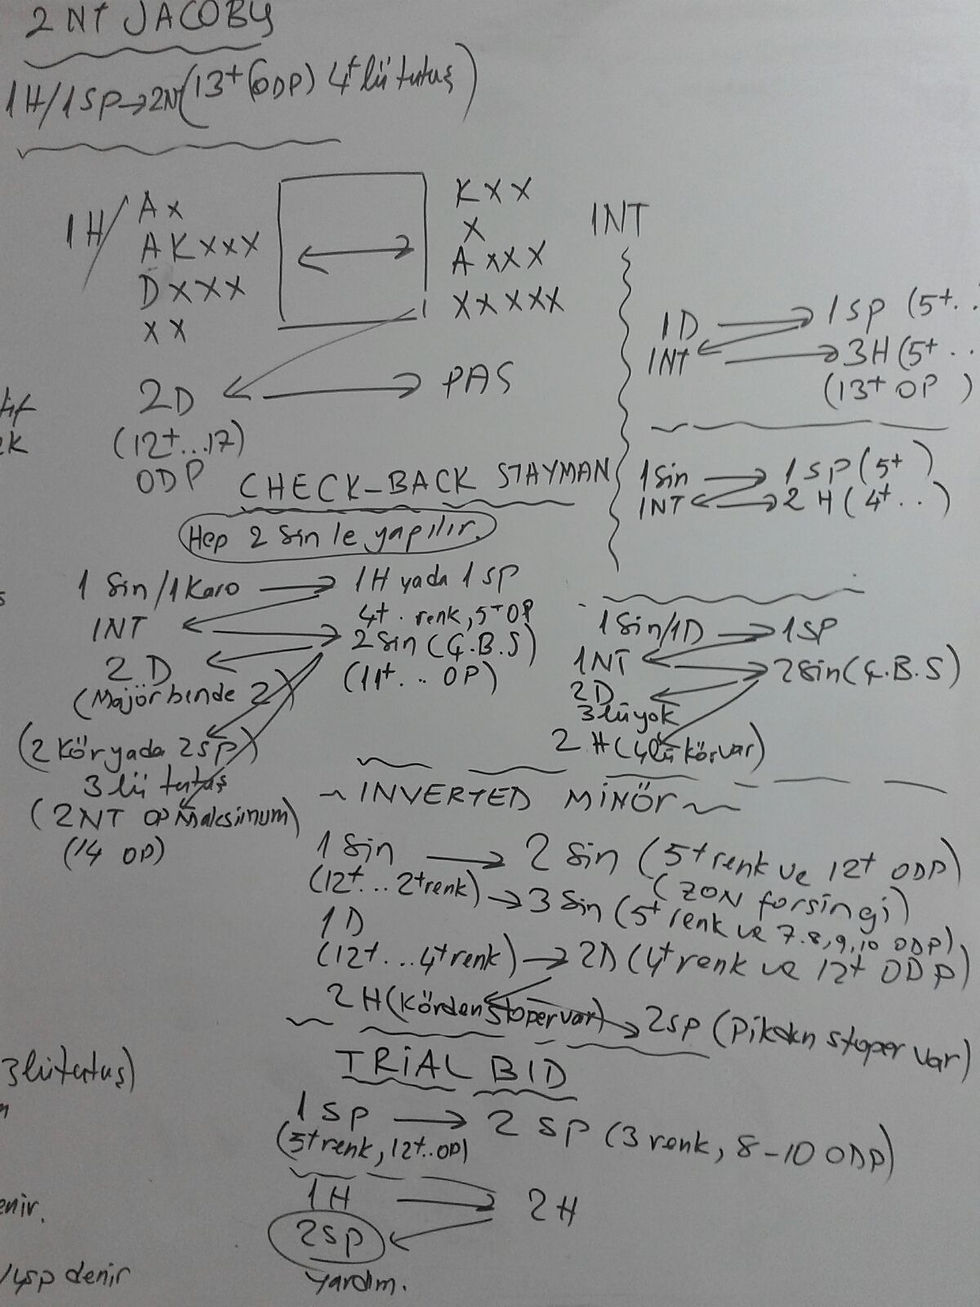 2 NT JACOBY
1H/1SP→2N(13+(ODP) 4+lü tutuş)
1H/ Ax
AKxxx
Dxxx
xx
Kxx
x
Axxx
xxxxx
2D → PAS
(12+...17)
ODP
1NT
1D → 1SP (5+..
1NT → 3H (5+..
(13+ OP)
1Sin → 1SP (5+)
1NT → 2H (4+..)
CHECK-BACK STAYMAN
Hep 2 Sinle yapılır.
1 Sin/1Karo → 1H yada 1SP
4+. renk, 5+OP
1NT
2Sin (Ç.B.S)
(11+.. OP)
2D
(Majör binde 2)
(2 Kör yada 2SP)
3 lü tutuş
(2NT OP Maksimum)
(14 OP)
1Sin/1D → 1SP
1NT
2Sin (Ç.B.S)
2D
3lü yok
2H (4lü kör var)
~ INVERTED MİNÖR ~
1 Sin → 2 Sin (5+renk ve 12+ ODP)
(ZON forsingi)
(12+...2+renk) → 3 Sin (5+ renk ve 7.8,9,10 ODP)
1D
(12+...4+renk) → 2D (4+renk ve 12+ ODP)
2H (Körden stoper var) → 2SP (Pikden stoper var)
TRİAL BID
1SP → 2SP (3 renk, 8-10 ODP)
(5+renk, 12+..OP)
1H → 2H
2SP
yardım.
ek
3lü tutuş)
enir.
/4SP denir